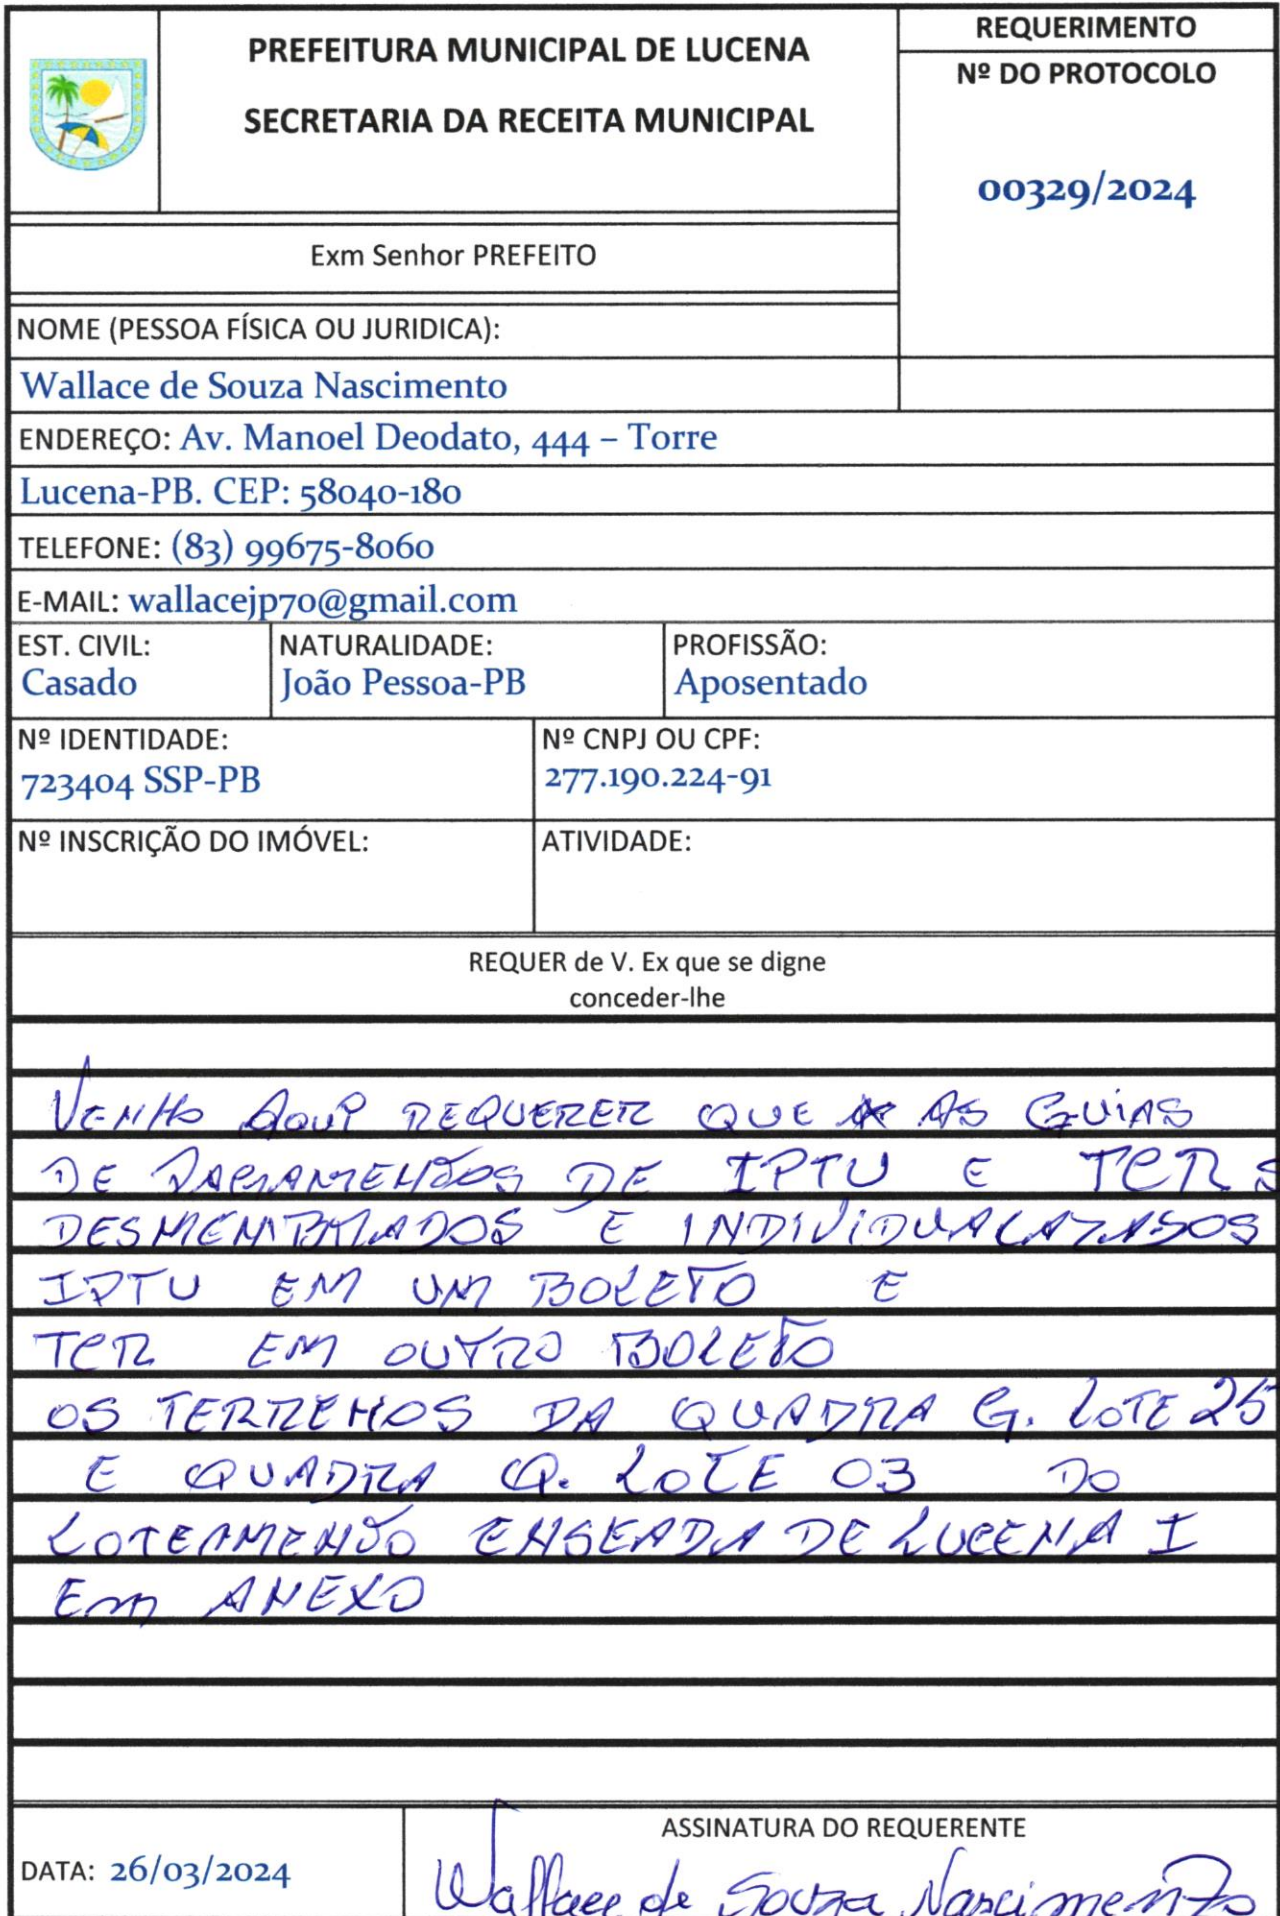 PREFEITURA MUNICIPAL DE LUCENA
SECRETARIA DA RECEITA MUNICIPAL
REQUERIMENTO
Nº DO PROTOCOLO
00329/2024
Exm Senhor PREFEITO
NOME (PESSOA FÍSICA OU JURIDICA):
Wallace de Souza Nascimento
ENDEREÇO: Av. Manoel Deodato, 444 – Torre
Lucena-PB. CEP: 58040-180
TELEFONE: (83) 99675-8060
E-MAIL: wallacejp70@gmail.com
EST. CIVIL:
Casado
NATURALIDADE:
João Pessoa-PB
PROFISSÃO:
Aposentado
Nº IDENTIDADE:
723404 SSP-PB
Nº CNPJ OU CPF:
277.190.224-91
Nº INSCRIÇÃO DO IMÓVEL:
ATIVIDADE:
REQUER de V. Ex que se digne
conceder-lhe
VENHO AQUI REQUERER QUE AS GUIAS
DE PAGAMENTOS DE IPTU E TCR S
DESMEMBRADOS E INDIVIDUALAZADOS
IPTU EM UM BOLETO E
TCR EM OUTRO BOLETO
OS TERRENOS DA QUADRA G. LOTE 25
E QUADRA Q. LOTE 03 DO
LOTEAMENTO ENSEADA DE LUCENA I
Em ANEXO
DATA: 26/03/2024
ASSINATURA DO REQUERENTE
Wallace de Souza Nascimento